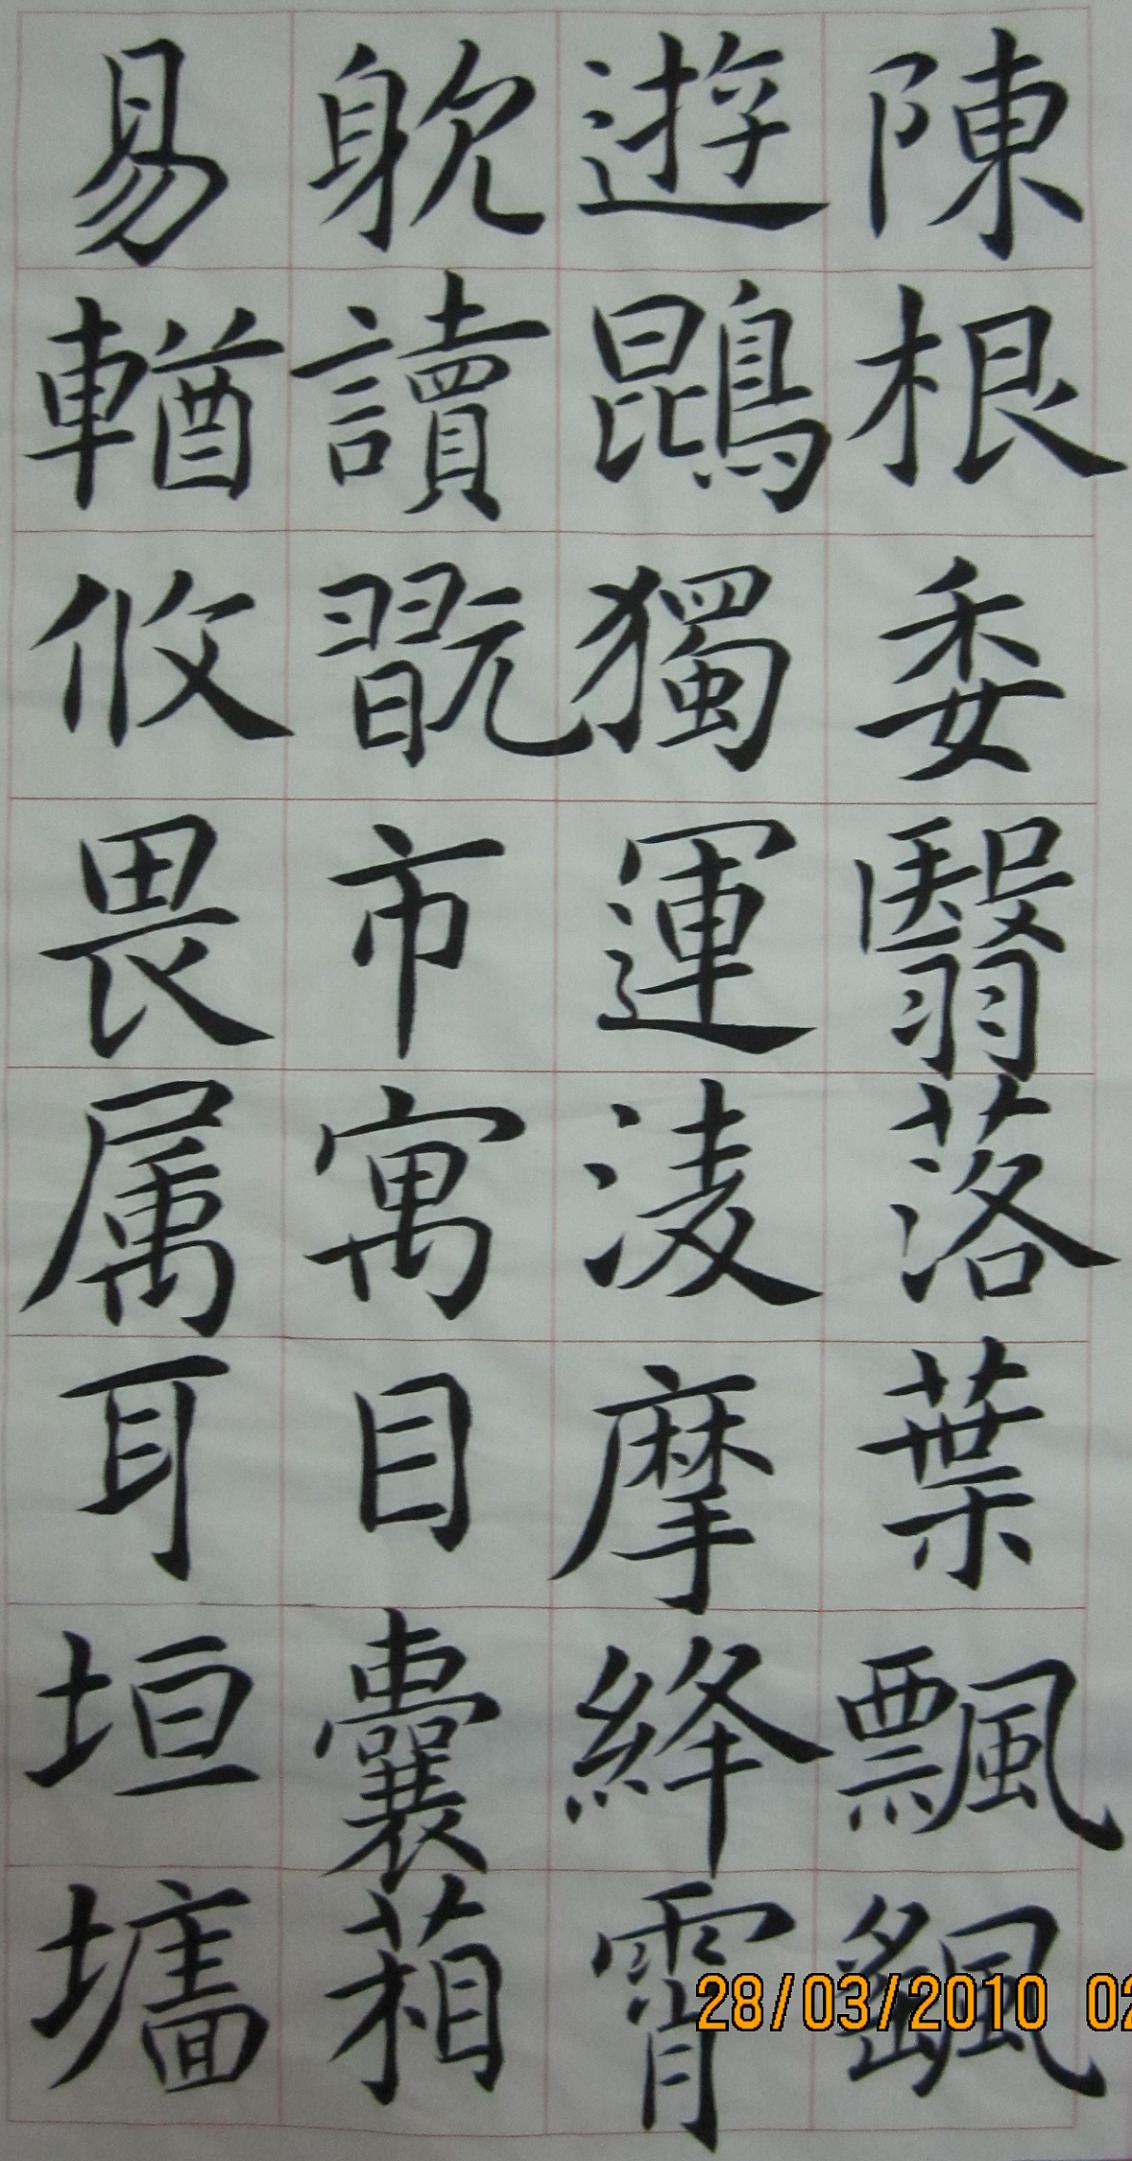 陳根委翳落葉飄颻
遊鵾獨運淩摩絳霄
躭讀翫市寓目囊葙
易輶攸畏属耳垣墻
28/03/2010 02